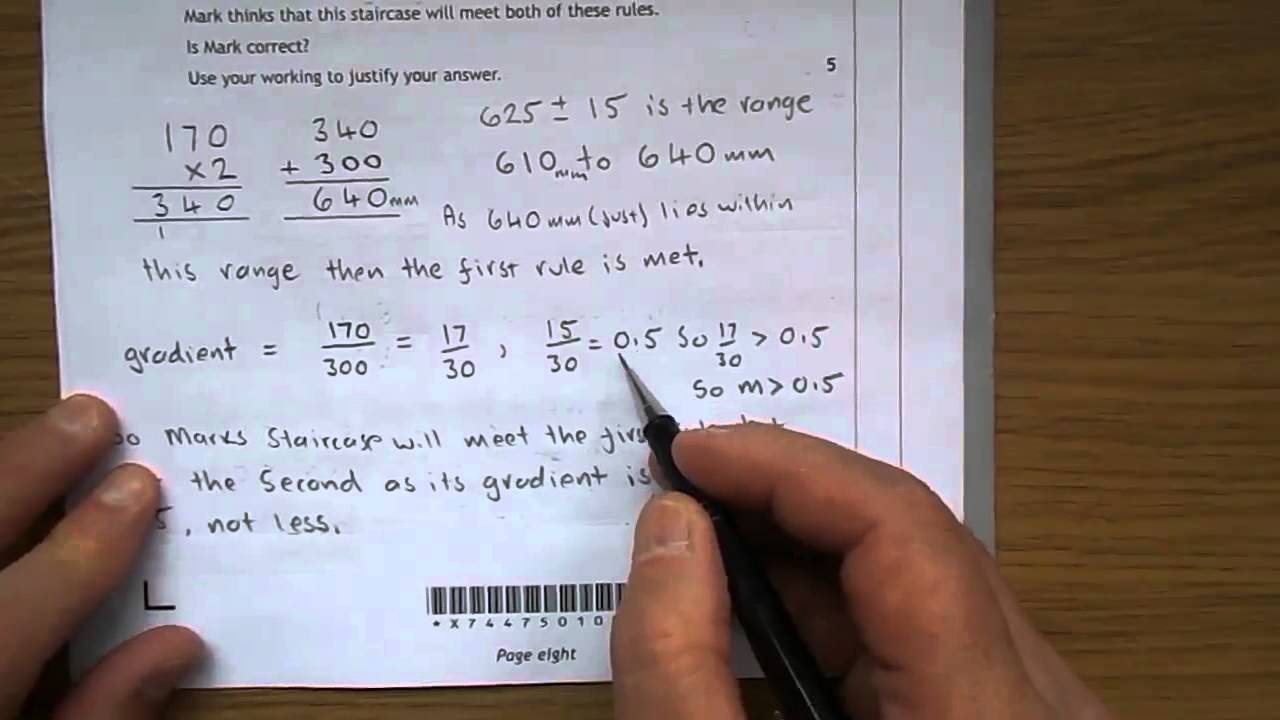 Mark thinks that this staircase will meet both of these rules.
Is Mark correct?
Use your working to justify your answer.
5
170
×2
340
1
340
+ 300
640mm
625 ± 15 is the range
610mm to 640mm
As 640mm (just) lies within
this range then the first rule is met.
gradient = 170/300 = 17/30 , 15/30 = 0.5 So 17/30 > 0.5
So m > 0.5
Marks Staircase will meet the
the Second as its gradient is
5 , not less.
*X74475010
Page eight